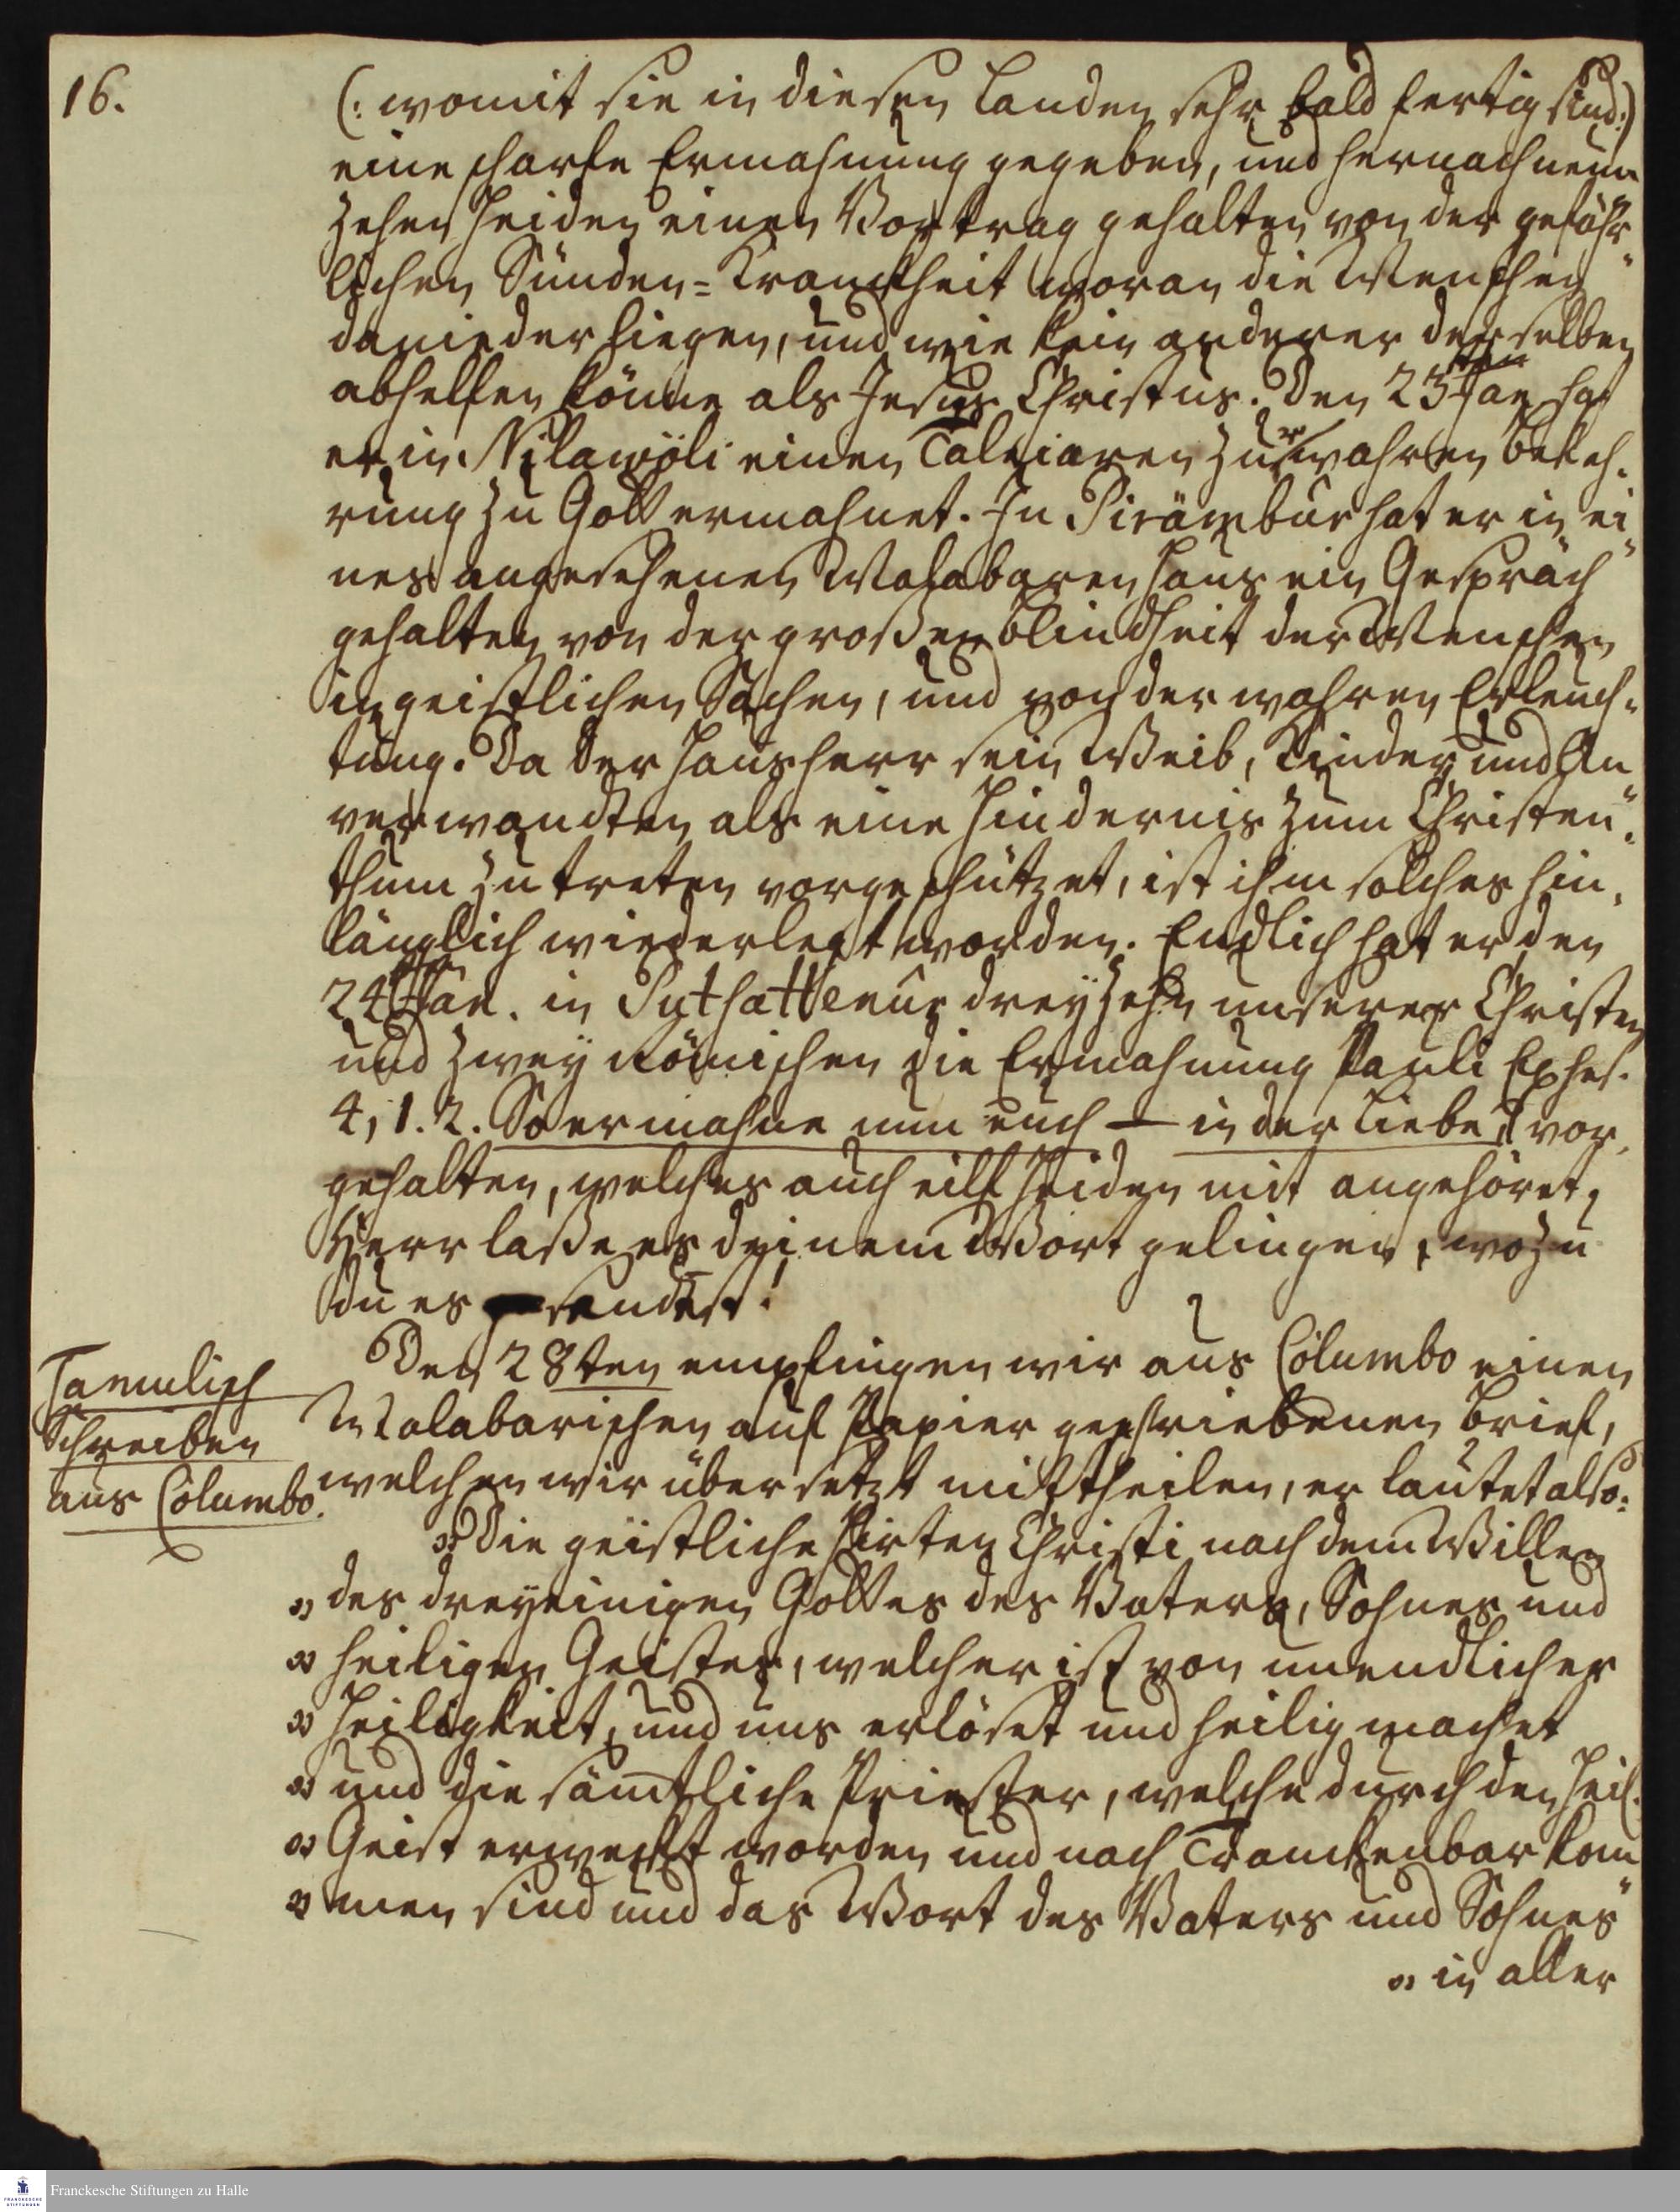 16.
(: womit sie in diesen Landen sehr bald fertig sind:)
eine scharfe Ermahnung gegeben, und hernach neun
zehen Heiden einen Vortrag gehalten von der gefähr"
lichen Sünden=Kranckheit woran die Menschen
danieder liegen, und wie kein anderer derselben
abhelfen könne als Jesus Christus. Den 23ten Jan hat
er in Nilawöli einen Taleiaren zur wahren Bekeh=
rung zu Gott ermahnet. In Pirämbur hat er in ei"
nes angesehenen Malabaren Haus ein Gespräch
gehalten von der großen Blindheit der Menschen
in geistlichen Sachen, und von der wahren Erleuch=
tung. Da der Hausherr sein Weib, Kinder und An"
verwandten als eine Hindernis zum Christen"
thum zu treten vorgeschützet, ist ihm solches hin=
länglich wiederlegt worden. Endlich hat er den
24ten Jan. in Puthattenur dreyzehn unserer Christen
und zwey Römischen die Ermahnung Pauli Ephes.
4, 1. 2. So ermahne nun euch — in der Liebe, vor=
gehalten, welches auch eilf Heiden mit angehöret,
Herr laße es deinem Wort gelingen, wozu
du es sendest!
Den 28ten empfingen wir aus Columbo einen
Malabarischen auf Papier geschriebenen Brief,
welchen wir übersetzt mittheilen, er lautet also:
Tamulisch
Schreiben
aus Columbo.
" Die geistliche Hirten Christi nach dem Willen
" des dreyeinigen Gottes des Vaters, Sohnes und
" heiligen Geistes, welcher ist von unendlicher
" Heiligkeit, und uns erlöset und heilig machet
" und die sämtliche Priester, welche durch den Heil.
" Geist erweckt worden und nach Tranckenbar kom"
" men sind und das Wort des Vaters und Sohnes
" in aller
Franckesche Stiftungen zu Halle